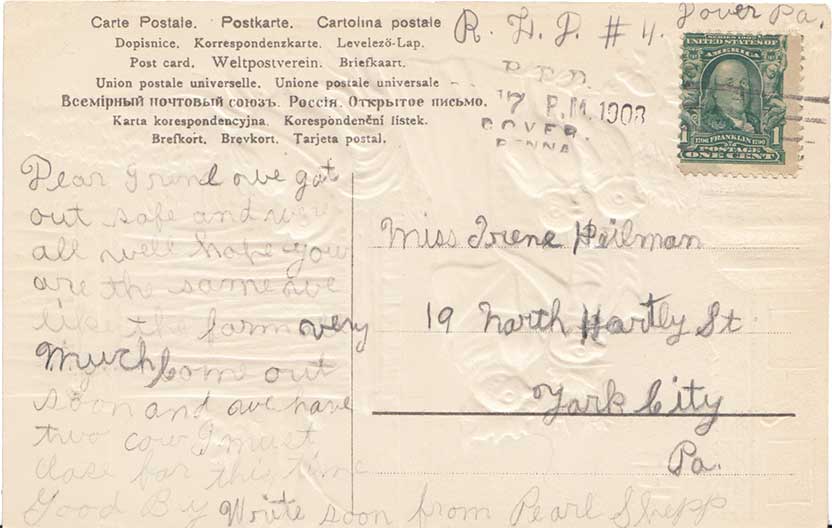 Carte Postale. Postkarte. Cartolina postale
Dopisnice. Korrespondenzkarte. Levelező-Lap.
Post card. Weltpostverein. Briefkaart.
Union postale universelle. Unione postale universale
Всемірный почтовый союзъ. Россія. Открытое письмо.
Karta korespondencyjna. Korespondenční lístek.
Brefkort. Brevkort. Tarjeta postal.
R. F. D. # 4. Dover Pa.
7 P.M. 1908
DOVER.
PENNA
UNITED STATES OF
AMERICA
1 FRANKLIN 1
POSTAGE
ONE CENT
Dear Friend we got
out safe and were
all well hope you
are the same we
like the farm very
Much come out
soon and we have
two cow I must
close for this time
Good By Write soon from Pearl Shepp
Miss Irene Heilman
19 North Hartly St
York City
Pa.